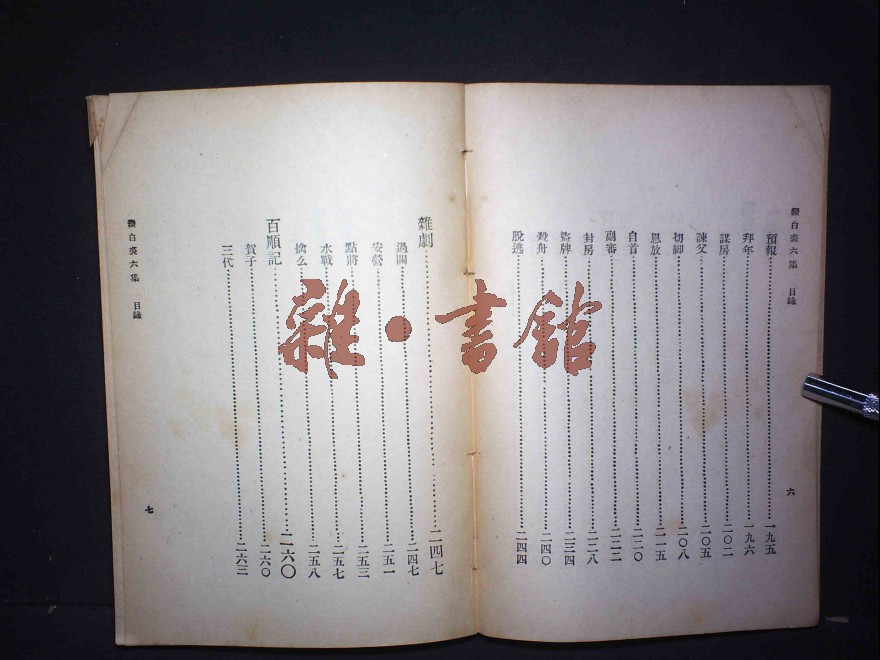 綴白裘六集 目錄
六
預報 一九五
拜年 一九六
謀房 二〇二
諫父 二〇五
切脚 二〇八
恩放 二一五
自首 二二〇
副審 二二二
封房 二二八
盜牌 二三四
殺舟 二四〇
脫逃 二四四
雜劇 二四七
過關 二四七
安營 二五一
點將 二五三
水戰 二五七
擒么 二五八
百順記 二六〇
賀子 二六〇
三代 二六三
綴白裘六集 目錄
七
雜·書館